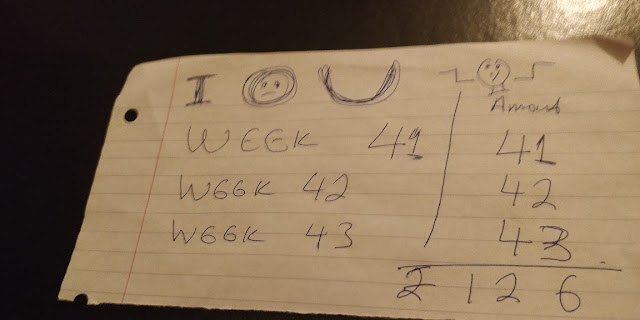 I O U
Amount
WEEK 41 41
WEEK 42 42
WEEK 43 43
126